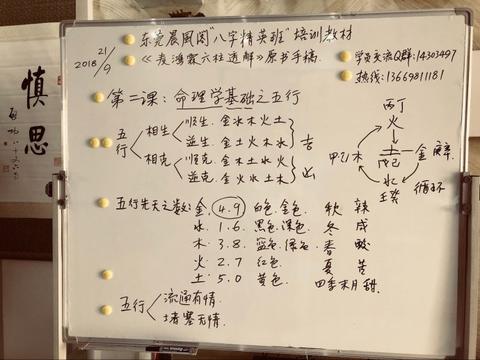 东莞晨风阁"八字精英班"培训教材
2018 21/9
《凌鸿霖六柱透解》原书手稿
学员交流Q群:14303497
热线:13669811181
第二课:命理学基础之五行
五行 相生 顺生.金水木火土 吉
逆生.金土火木水
相克 顺克.金木土水火 凶
逆克.金火水土木
丙丁
火
甲乙木 土 金庚辛
戊己
水
壬癸 循环
五行先天之数:金.4.9 白色.金色. 秋 辣
水.1.6.黑色.深色. 冬 咸
木.3.8.蓝色.绿色. 春 酸
火.2.7.红色. 夏 苦
土.5.0 黄色. 四季末月 甜.
五行 流通有情.
堵塞无情.
慎思